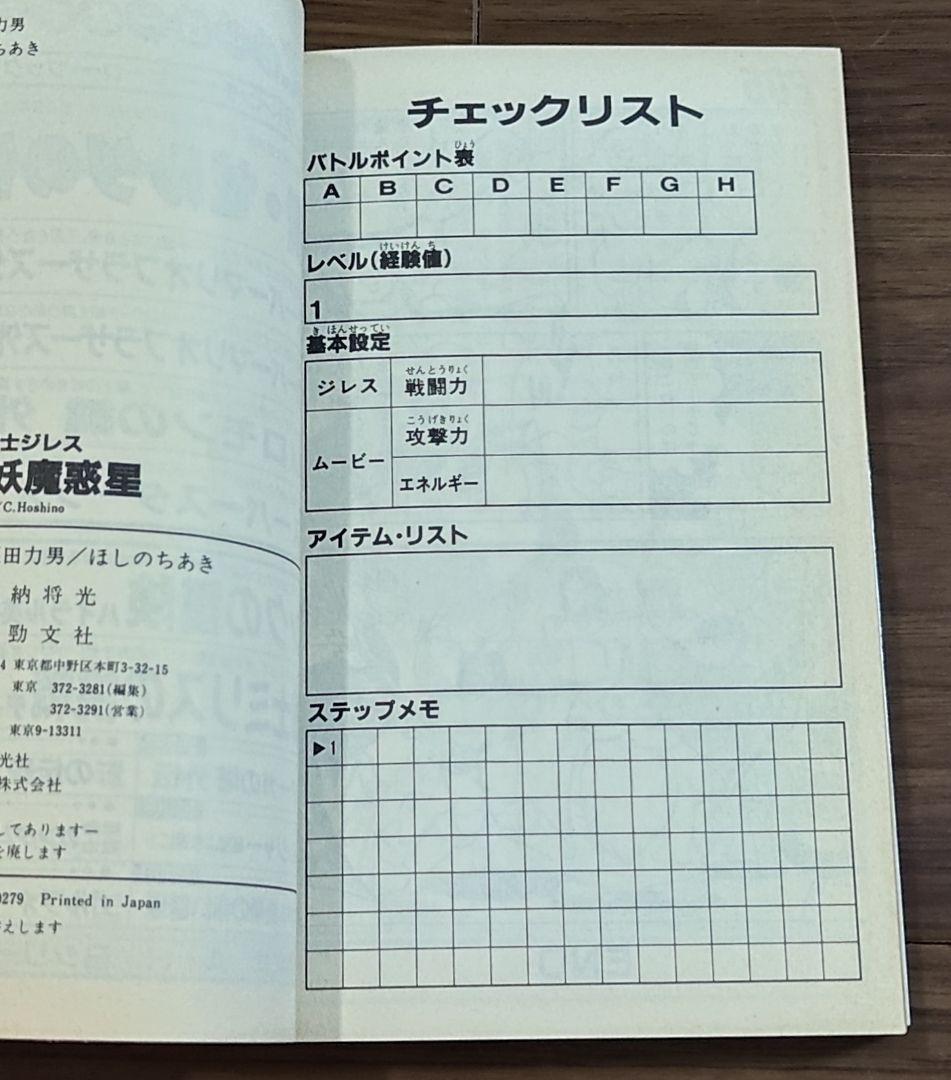 力男
ちあき
士ジレス
妖魔惑星
C.Hoshino
田力男／ほしのちあき
納 将 光
勁 文 社
4 東京都中野区本町3-32-15
東京 372-3281(編集)
372-3291(営業)
東京9-13311
光社
株式会社
してありますー
を廃します
0279 Printed in Japan
えします
チェックリスト
バトルポイント表
ひょう
A B C D E F G H
レベル(経験値)
けいけん ち
1
基本設定
き ほんせってい
ジレス
戦闘力
せんとうりょく
ムービー
攻撃力
こうげきりょく
エネルギー
アイテム・リスト
ステップメモ
▶1